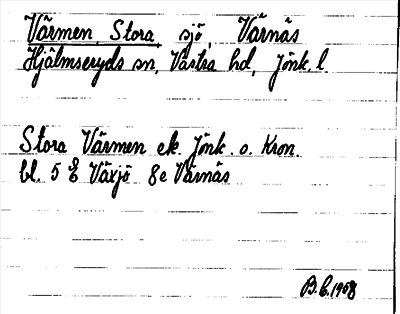 Värmen, Stora, sjö, Värnäs
Hjälmseryds sn, Västra hd, Jönk. l.
Stora Värmen ek. Jönk. o. Kron.
bl. 5 Växjö 8e Värnäs
B.E. 1958